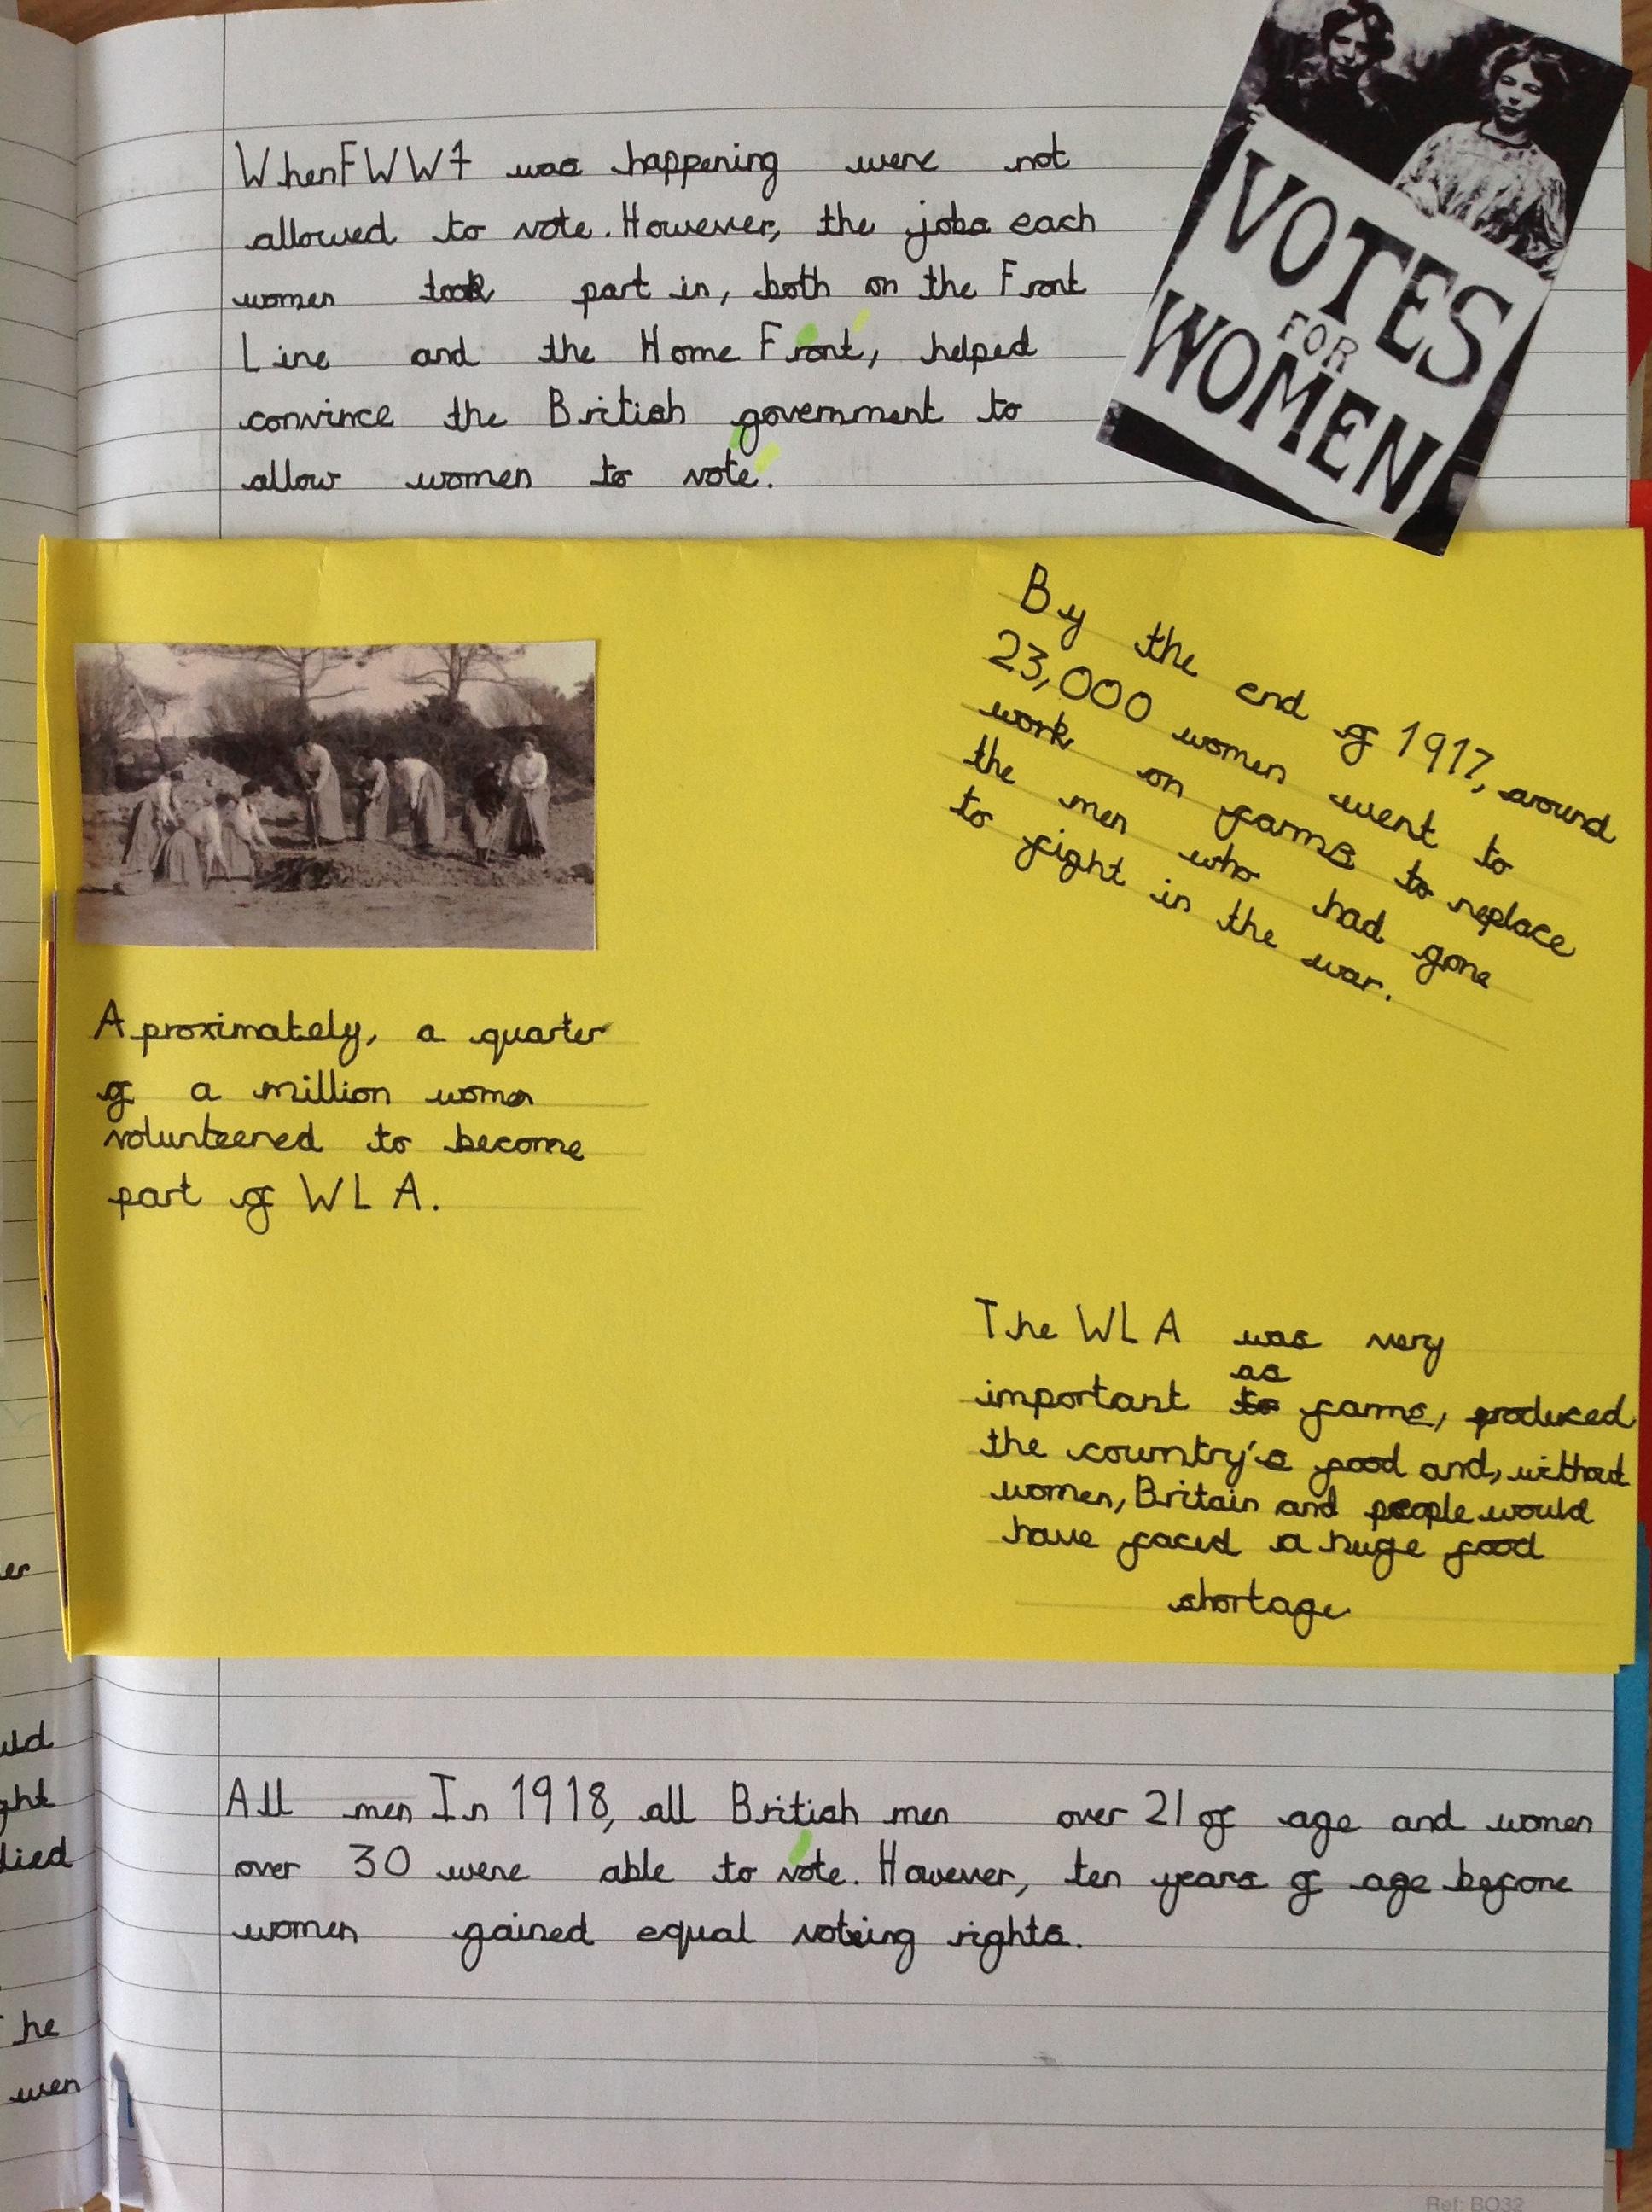 WhenFWW1 was happening were not
allowed to vote. However, the jobs each
women took part in, both on the Front
Line and the Home Front, helped
convince the British government to
allow women to vote.
VOTES
FOR
WOMEN
By the end of 1917, around
23,000 women went to
work on farms to replace
the men who had gone
to fight in the war.
Aproximately, a quarter
of a million women
volunteered to become
part of WLA.
The WLA was very
as
important to farms, produced
the country's food and, without
women, Britain and people would
have faced a huge food
shortage
All men In 1918, all British men over 21 of age and women
over 30 were able to vote. However, ten years of age before
women gained equal voting rights.
er
uld
ght
lied
he
wen
Ref: BO32